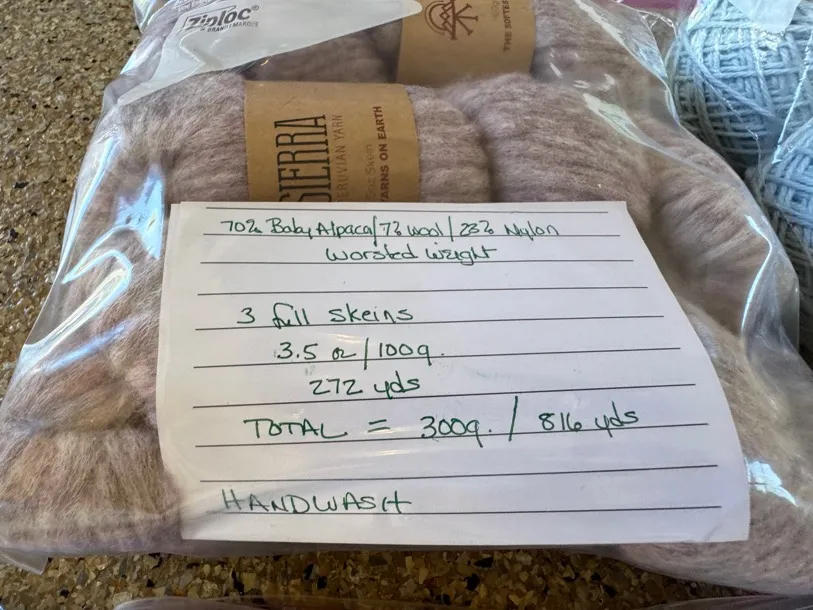 Ziploc®
THE SOFTES
SIERRA
PERUVIAN YARN
YARNS ON EARTH
70% Baby Alpaca/7% wool/23% Nylon
Worsted Weight
3 full skeins
3.5 oz/100g.
272 yds
TOTAL = 300g. / 816 yds
HANDWASH